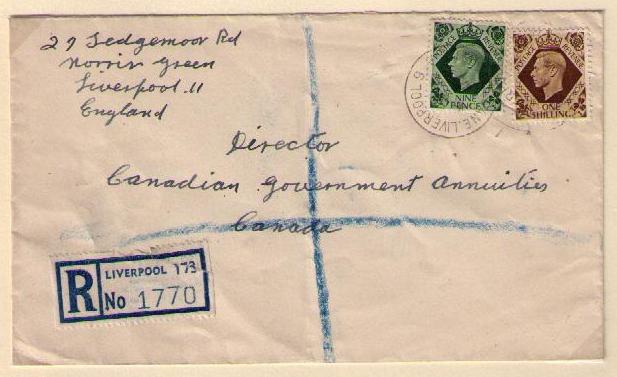 29 Sedgemoor Rd
Norris Green
Liverpool 11
England
POSTAGE REVENUE
NINE
PENCE
POSTAGE REVENUE
ONE
SHILLING
LIVERPOOL 9
Director
Canadian Government Annuities
Canada
R
LIVERPOOL 173
No 1770